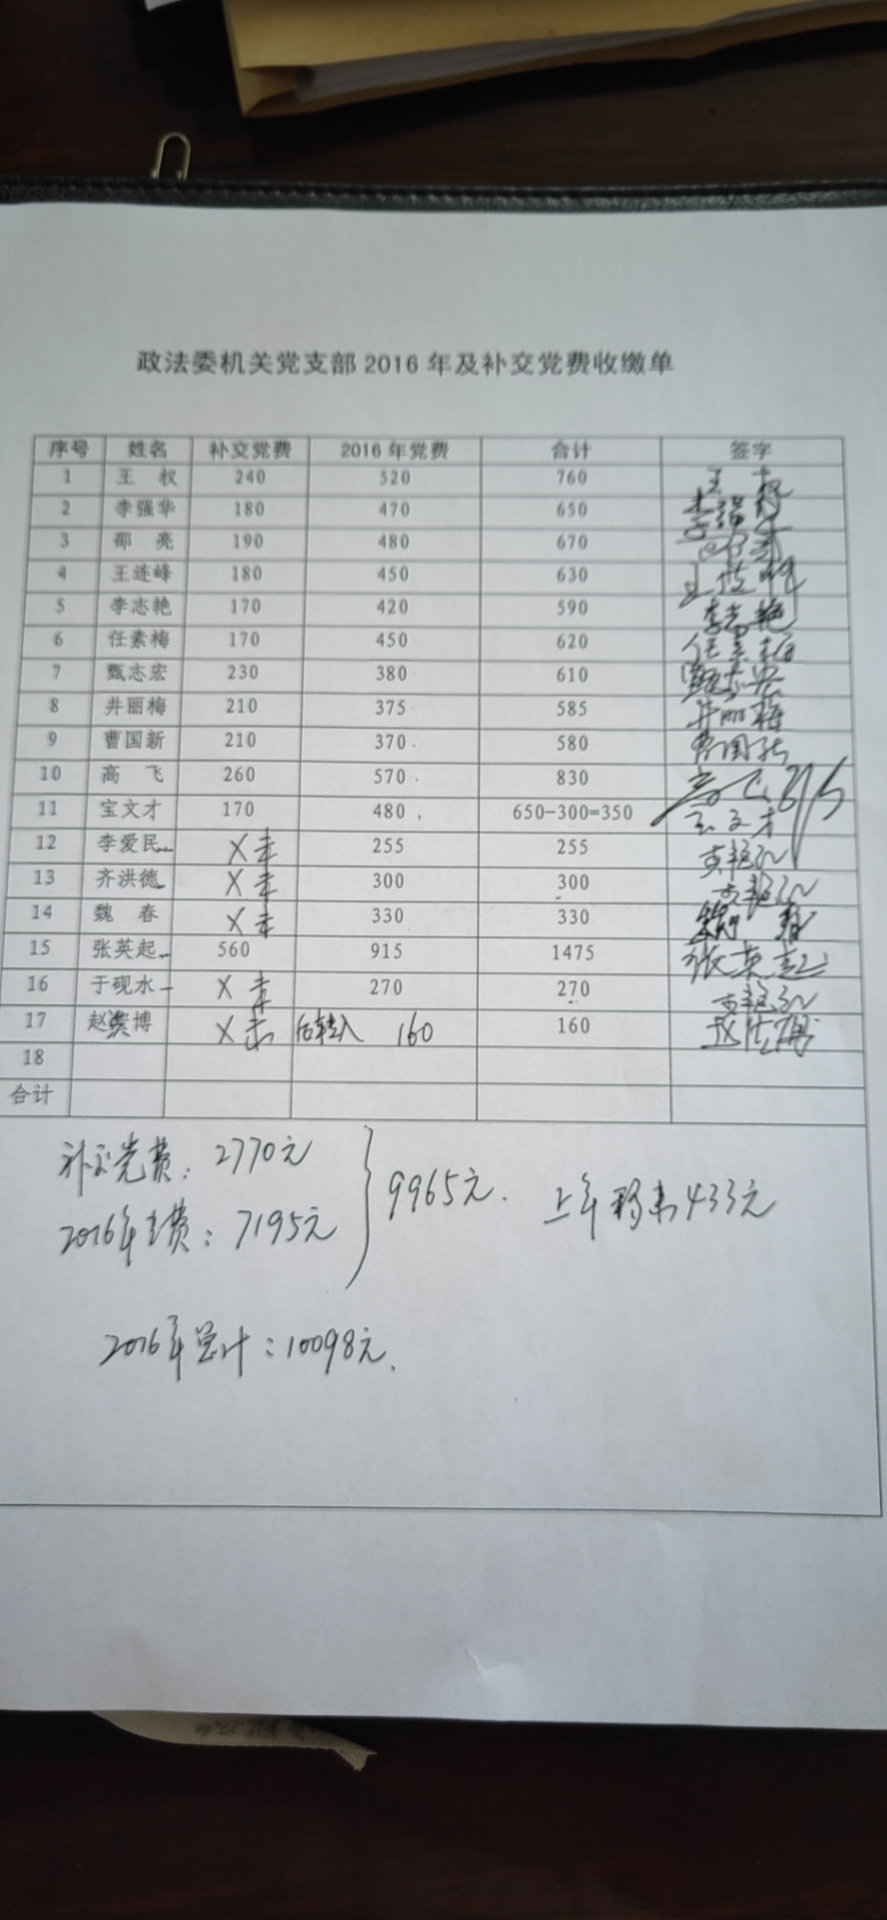 政法委机关党支部 2016 年及补交党费收缴单
序号 姓名 补交党费 2016 年党费 合计 签字
1 王 权 240 520 760 王 权
2 李强华 180 470 650 李强华
3 邵 亮 190 480 670
4 王连峰 180 450 630
5 李志艳 170 420 590 李志艳
6 任素梅 170 450 620 任素梅
7 甄志宏 230 380 610 甄志宏
8 井丽梅 210 375 585 井丽梅
9 曹国新 210 370 580 曹国新
10 高 飞 260 570 830 高飞
11 宝文才 170 480 650-300=350 宝文才
12 李爱民 X 255 255
13 齐洪德 X 300 300
14 魏 春 X 330 330 魏 春
15 张英起 560 915 1475 张英起
16 于砚水 X 270 270
17 赵 博 X 160 160
18
合计
补交党费：2770元
2016年党费：7195元
9965元. 上年移来433元
2016年总计：10098元.